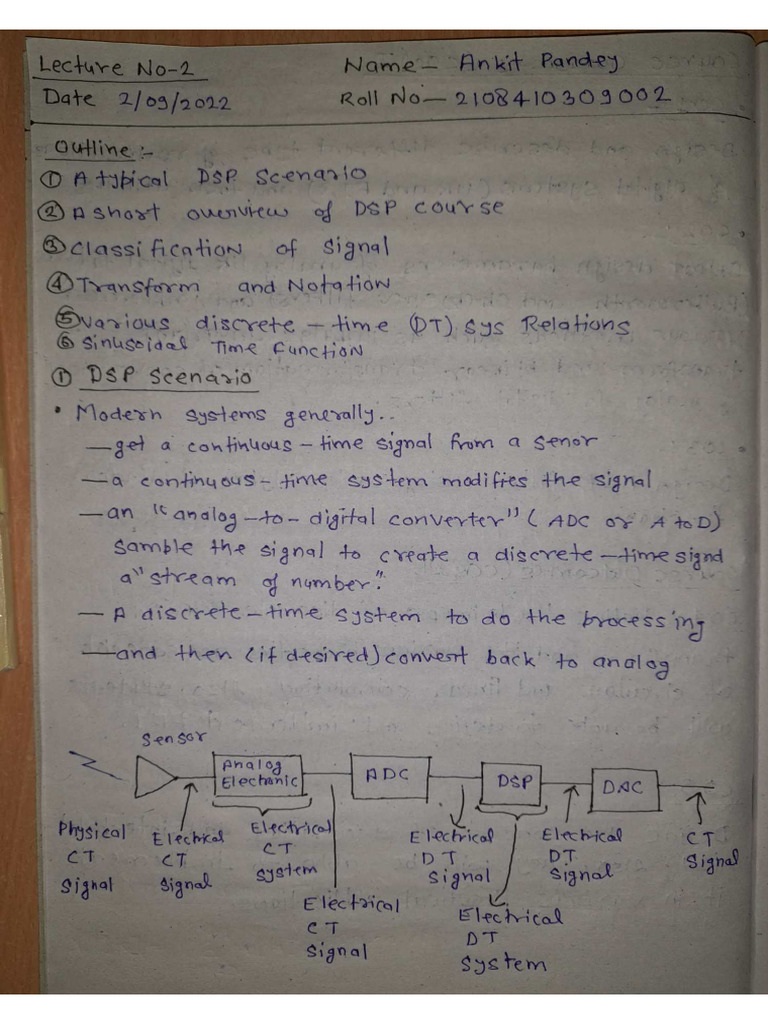 Lecture No-2
Name- Ankit Pandey
Date 2/09/2022
Roll No- 2108410309002
Outline:-
① A typical DSP Scenario
② A short overview of DSP course
③ Classification of signal
④ Transform and Notation
⑤ Various discrete-time (DT) sys Relations
⑥ Sinusoidal Time function
① DSP Scenario
• Modern systems generally..
— get a continuous-time signal from a senor
— a continuous-time system modifies the signal
— an "analog-to-digital converter" (ADC or A to D)
Samble the signal to create a discrete-time signd
a "stream of number".
— A discrete-time system to do the processing
— and then (if desired) convert back to analog
Sensor
Analog
Electronic
ADC
DSP
DAC
Physical
CT
Signal
Electrical
CT
Signal
Electrical
CT
System
Electrical
CT
Signal
Electrical
DT
Signal
Electrical
DT
System
Electrical
DT
Signal
CT
Signal